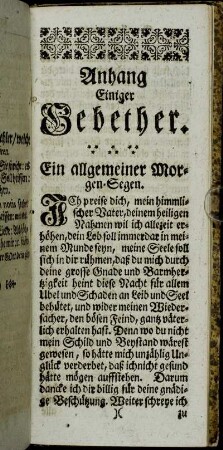 Anhang
Einiger
Gebether.
Ein allgemeiner Mor-
gen-Segen.
ICh preise dich, mein himmli-
scher Vater, deinem heiligen
Nahmen wil ich allezeit er-
höhen, dein Lob soll immerdar in mei-
nem Munde seyn, meine Seele soll
sich in dir rühmen, daß du mich durch
deine grosse Gnade und Barmher-
tzigkeit heint diese Nacht für allem
Ubel und Schaden an Leib und Seel
behütet, und wider meinen Wieder-
sacher, den bösen Feind, gantz väter-
lich erhalten hast. Denn wo du nicht
mein Schild und Beystand wärest
gewesen, so hätte mich unzählig Un-
glück verderbet, daß ich nicht gesund
hätte mögen auffstehen. Darum
dancke ich dir billig für deine gnädi-
ge Beschützung. Weiter schreye ich
)( zu